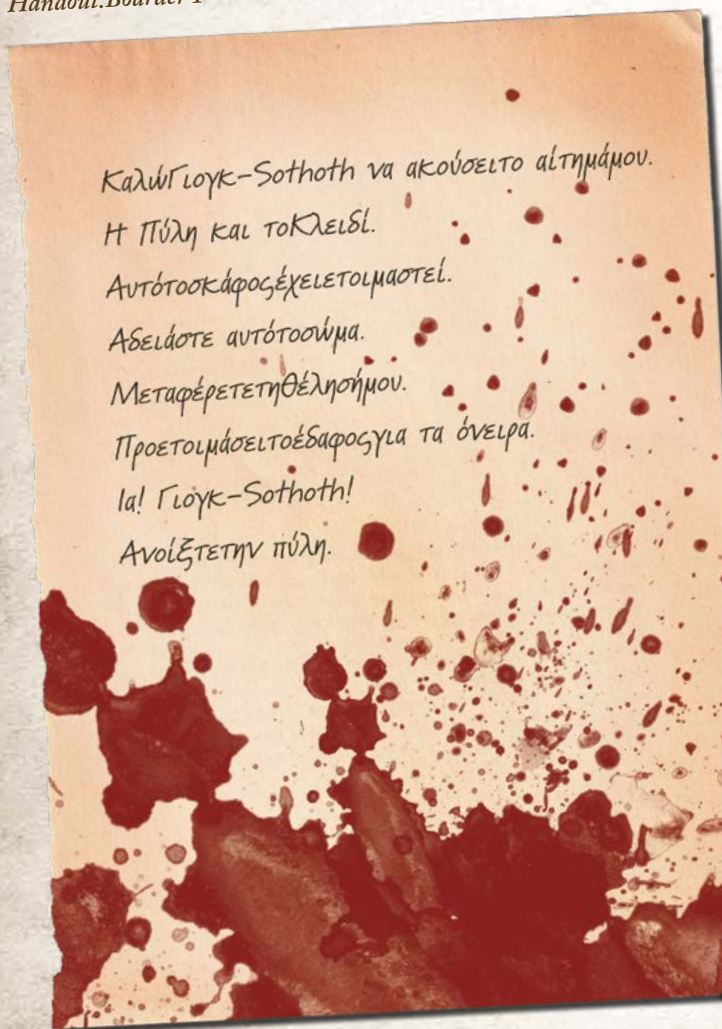 Handout:Boarder 1
ΚαλώΓιογκ-Sothoth να ακούσειτο αίτημάμου.
Η Πύλη και τοΚλειδί.
Αυτότοσκάφοςέχειετοιμαστεί.
Αδειάστε αυτότοσώμα.
ΜεταφέρετετηΘέλησήμου.
Προετοιμάσειτοέδαφοςγια τα όνειρα.
Ια! Γιογκ-Sothoth!
Ανοίξτετην πύλη.